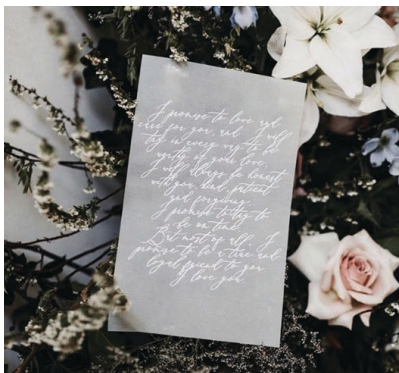 I promise to love and
care for you, and I will
try in every way to be
worthy of your love.
I will always be honest
with you, kind, patient
and forgiving.
I promise to try to
be on time.
But most of all, I
promise to be a true and
loyal friend to you
I love you